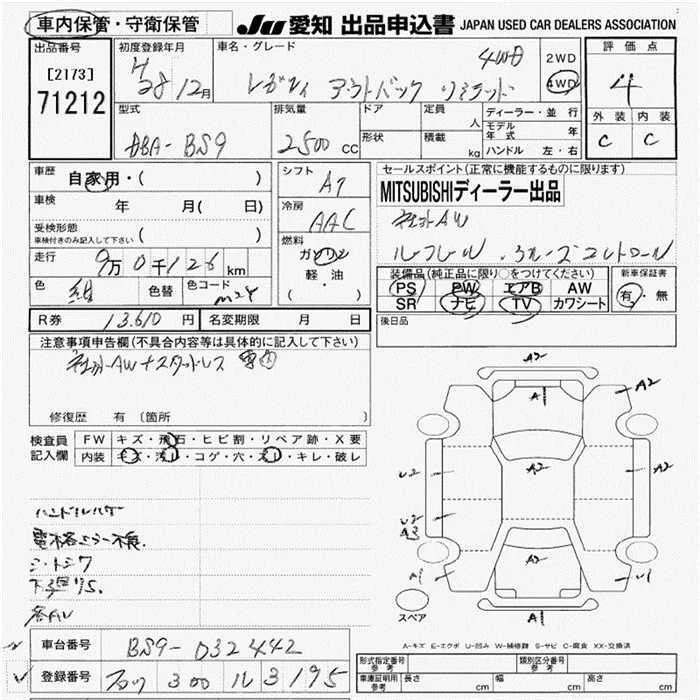 車内保管・守衛保管
JU 愛知 出品申込書 JAPAN USED CAR DEALERS ASSOCIATION
出品番号
[2173]
71212
初度登録年月
28/12月
車名・グレード
レガシィ アウトバック リミテッド
4WD
2WD
4WD
評価点
4
外装 内装
C C
型式
DBA-BS9
排気量
2500 cc
ドア
形状
定員 人
積載 kg
ディーラー・並行
モデル年式 年
ハンドル 左・右
車歴
自家用・( )
車検 年 月( 日)
受検形態
車検付きのみ記入して下さい ( )
走行 9万0千126 km
色 紺 色替 色コード
シフト
A7
冷房
AAC
燃料
ガソリン
軽・油
( ・ )
R券 13,610 円 名変期限 月 日
セールスポイント(正常に機能するものに限ります)
MITSUBISHIディーラー出品
社外AW
ルーフレール、クルーズコントロール
装備品(純正品に限り○をつけてください)
PS PW エアB AW
SR ナビ TV カワシート
新車保証書
有・無
後日品
注意事項申告欄(不具合内容等は具体的に記入して下さい)
社外AW+スタッドレス 車内
修復歴 有〔箇所 〕
検査員記入欄
FW キズ・飛石・ヒビ割・リペア跡・X要
内装 キズ・汚れ・コゲ・穴・スレ・キレ・破レ
ハンドルハゲ
電格ミラー不良.
シートシワ
下廻りS.
各AU
A2
A1
A2
A2
U2
A2
U2
A3
A2
A1
U1
A1
スペア
A-キズ E-エクボ U-凹み W-補修跡 S-サビ C-腐食 XX-交換済
車台番号 BS9-032442
登録番号 300 ル 3195
形式指定番号 参考
類別区分番号 参考
車庫証明用 参考 長さ cm 幅 cm 高さ cm